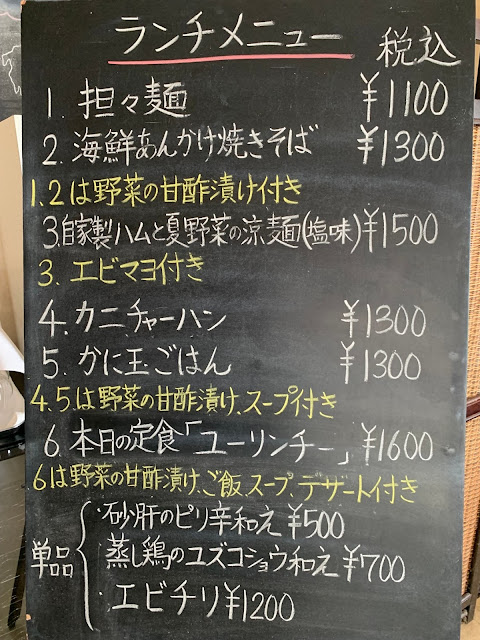 ランチメニュー 税込
1. 担々麺 ¥1100
2. 海鮮あんかけ焼きそば ¥1300
1.2は野菜の甘酢漬け付き
3.自家製ハムと夏野菜の涼麺(塩味)¥1500
3. エビマヨ付き
4. カニチャーハン ¥1300
5. かに玉ごはん ¥1300
4.5は野菜の甘酢漬け、スープ付き
6. 本日の定食「ユーリンチー」¥1600
6は野菜の甘酢漬け、ご飯、スープ、デザート付き
・砂肝のピリ辛和え ¥500
単品 ・蒸し鶏のユズコショウ和え ¥700
・エビチリ ¥1200